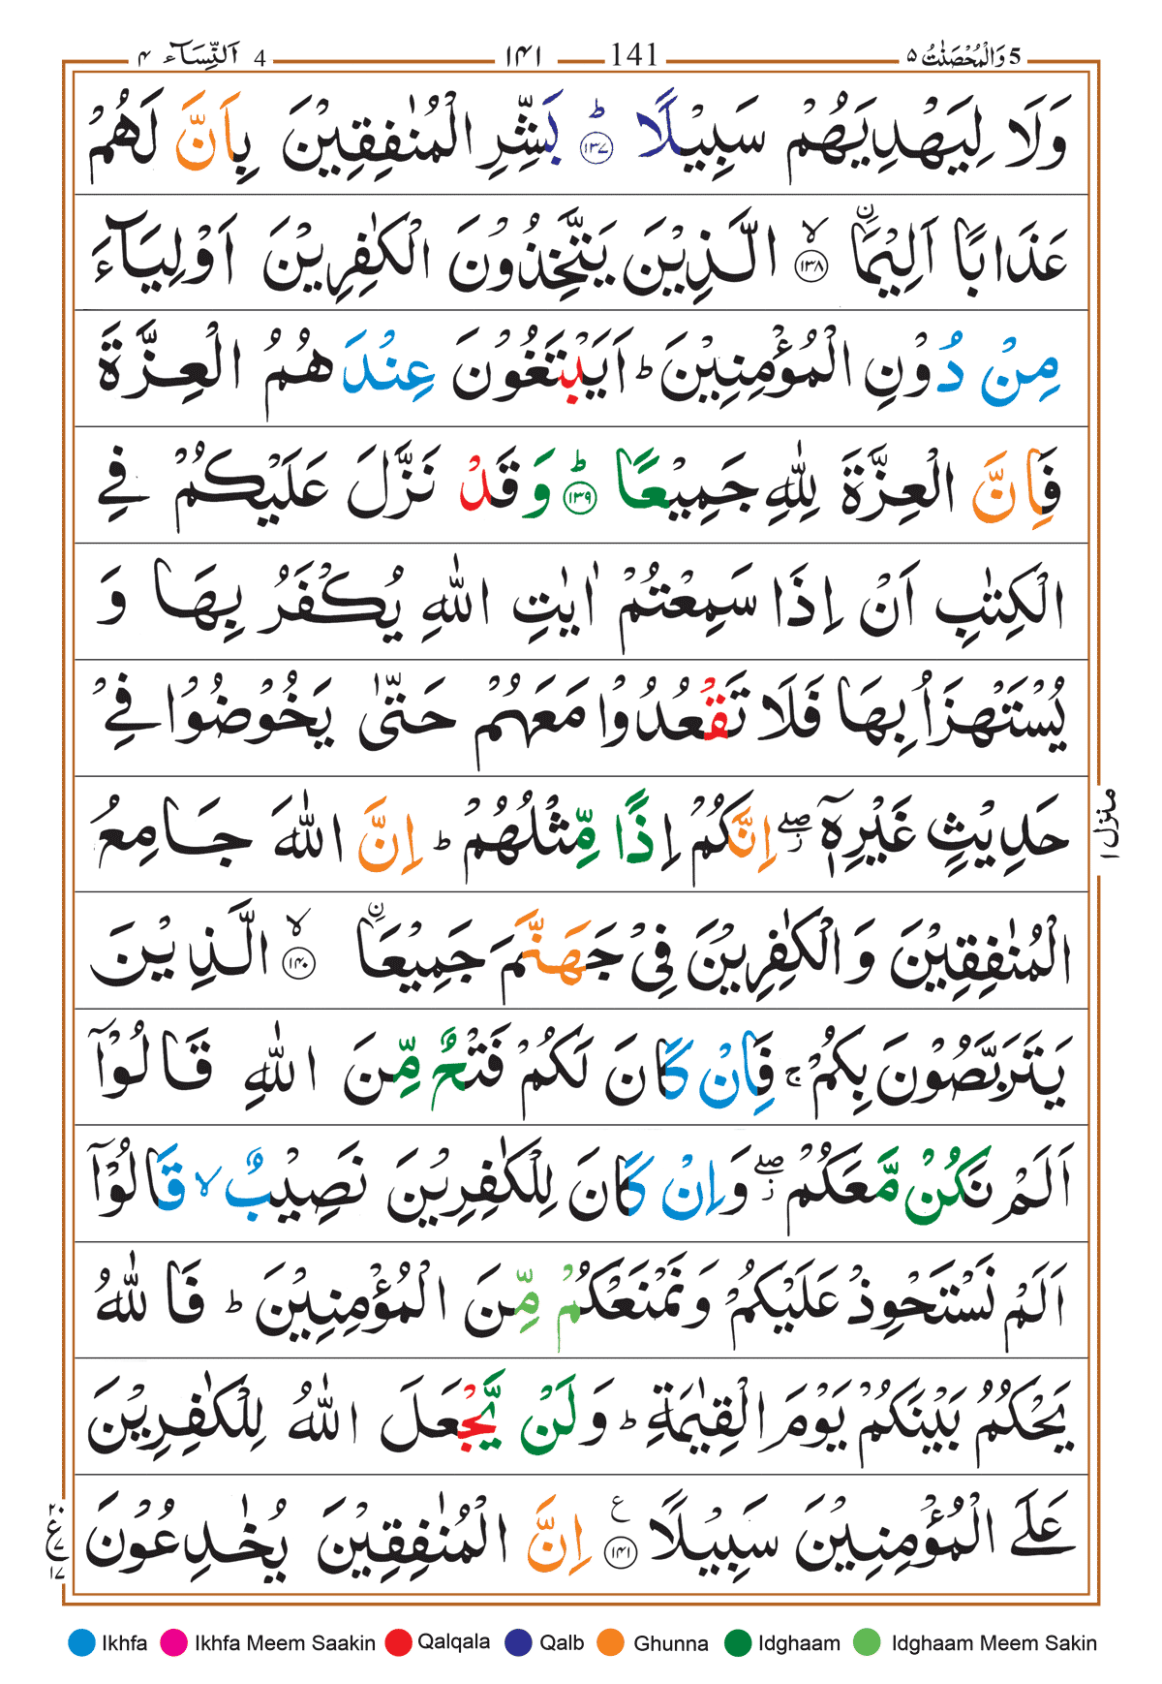 5 وَالْمُحْصَنٰتُ ۵ 141 ۱۴۱ 4 اَلنِّسَآء ۴
وَلَا لِيَهْدِيَهُمْ سَبِيْلًا ؕ ﴿۱۳۷﴾ بَشِّرِ الْمُنٰفِقِيْنَ بِاَنَّ لَهُمْ
عَذَابًا اَلِيْمَاۨ ۙ ﴿۱۳۸﴾ الَّذِيْنَ يَتَّخِذُوْنَ الْكٰفِرِيْنَ اَوْلِيَآءَ
مِنْ دُوْنِ الْمُؤْمِنِيْنَ ؕ اَيَبْتَغُوْنَ عِنْدَهُمُ الْعِزَّةَ
فَاِنَّ الْعِزَّةَ لِلّٰهِ جَمِيْعًا ؕ ﴿۱۳۹﴾ وَقَدْ نَزَّلَ عَلَيْكُمْ فِي
الْكِتٰبِ اَنْ اِذَا سَمِعْتُمْ اٰيٰتِ اللّٰهِ يُكْفَرُ بِهَا وَ
يُسْتَهْزَاُ بِهَا فَلَا تَقْعُدُوْا مَعَهُمْ حَتّٰى يَخُوْضُوْا فِيْ
حَدِيْثٍ غَيْرِهٖٓ ۖ ز اِنَّكُمْ اِذًا مِّثْلُهُمْ ؕ اِنَّ اللّٰهَ جَامِعُ
الْمُنٰفِقِيْنَ وَالْكٰفِرِيْنَ فِيْ جَهَنَّمَ جَمِيْعَاۨ ۙ ﴿۱۴۰﴾ الَّذِيْنَ
يَتَرَبَّصُوْنَ بِكُمْ ۚ فَاِنْ كَانَ لَكُمْ فَتْحٌ مِّنَ اللّٰهِ قَالُوْۤا
اَلَمْ نَكُنْ مَّعَكُمْ ۖ ز وَاِنْ كَانَ لِلْكٰفِرِيْنَ نَصِيْبٌ ۙ قَالُوْۤا
اَلَمْ نَسْتَحْوِذْ عَلَيْكُمْ وَنَمْنَعْكُمْ مِّنَ الْمُؤْمِنِيْنَ ؕ فَاللّٰهُ
يَحْكُمُ بَيْنَكُمْ يَوْمَ الْقِيٰمَةِ ؕ وَلَنْ يَّجْعَلَ اللّٰهُ لِلْكٰفِرِيْنَ
عَلَى الْمُؤْمِنِيْنَ سَبِيْلًا ۠ ﴿۱۴۱﴾ اِنَّ الْمُنٰفِقِيْنَ يُخٰدِعُوْنَ
منزل ۱
۲۰ ع ۷ ۱۷
Ikhfa Ikhfa Meem Saakin Qalqala Qalb Ghunna Idghaam Idghaam Meem Sakin